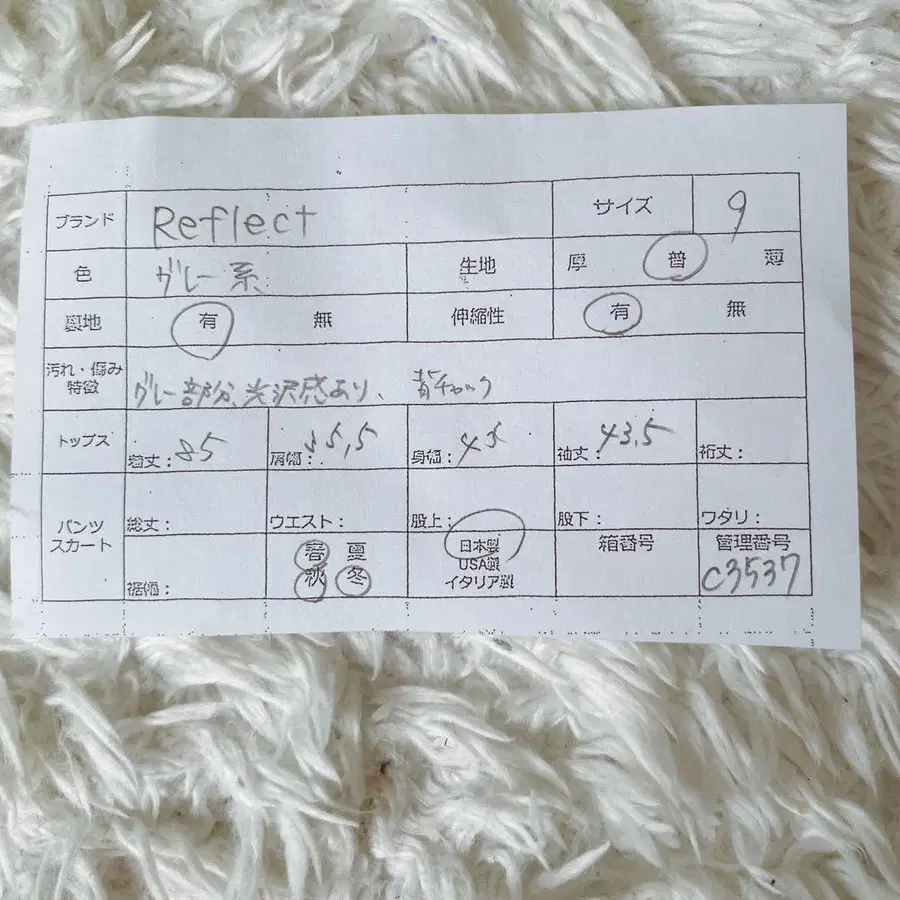 ブランド Reflect サイズ 9
色 グレー系 生地 厚 普 薄
裏地 有 無 伸縮性 有 無
汚れ・傷み
特徴 グレー部分、光沢感あり、背チャック
トップス 着丈：85 肩幅：35,5 身幅：45 袖丈：43.5 裄丈：
パンツ
スカート
総丈： ウエスト： 股上： 股下： ワタリ：
裾幅： 春 夏 日本製 箱番号 管理番号
秋 冬 USA製 C3537
イタリア製